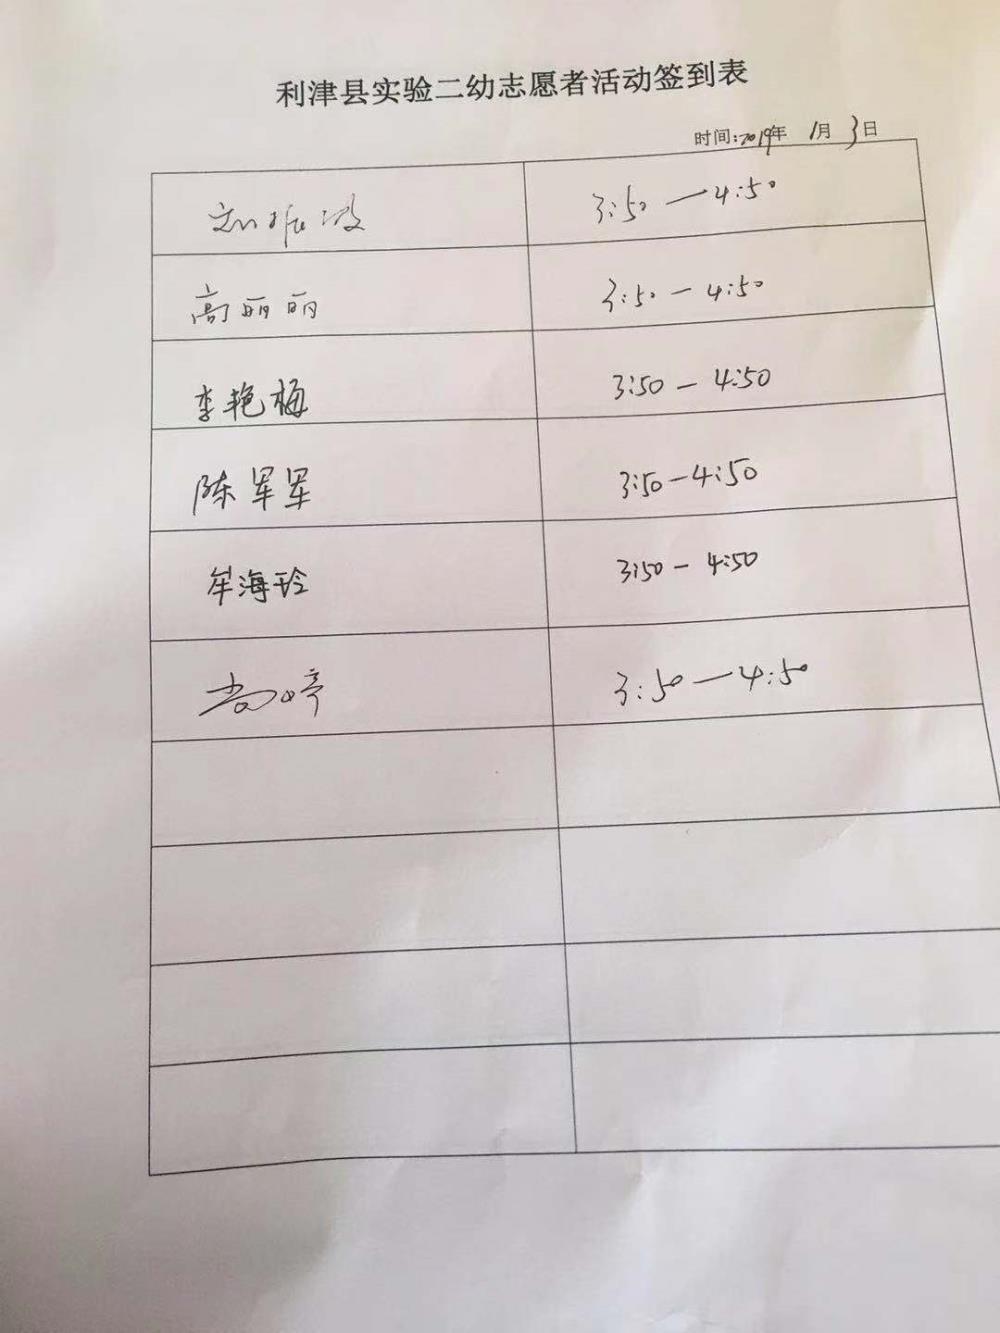 利津县实验二幼志愿者活动签到表
时间:2019年 1月 3日
刘振波 3:50—4:50
高丽丽 3:50—4:50
李艳梅 3:50—4:50
陈军军 3:50—4:50
牟海玲 3:50—4:50
尚婷 3:50—4:50